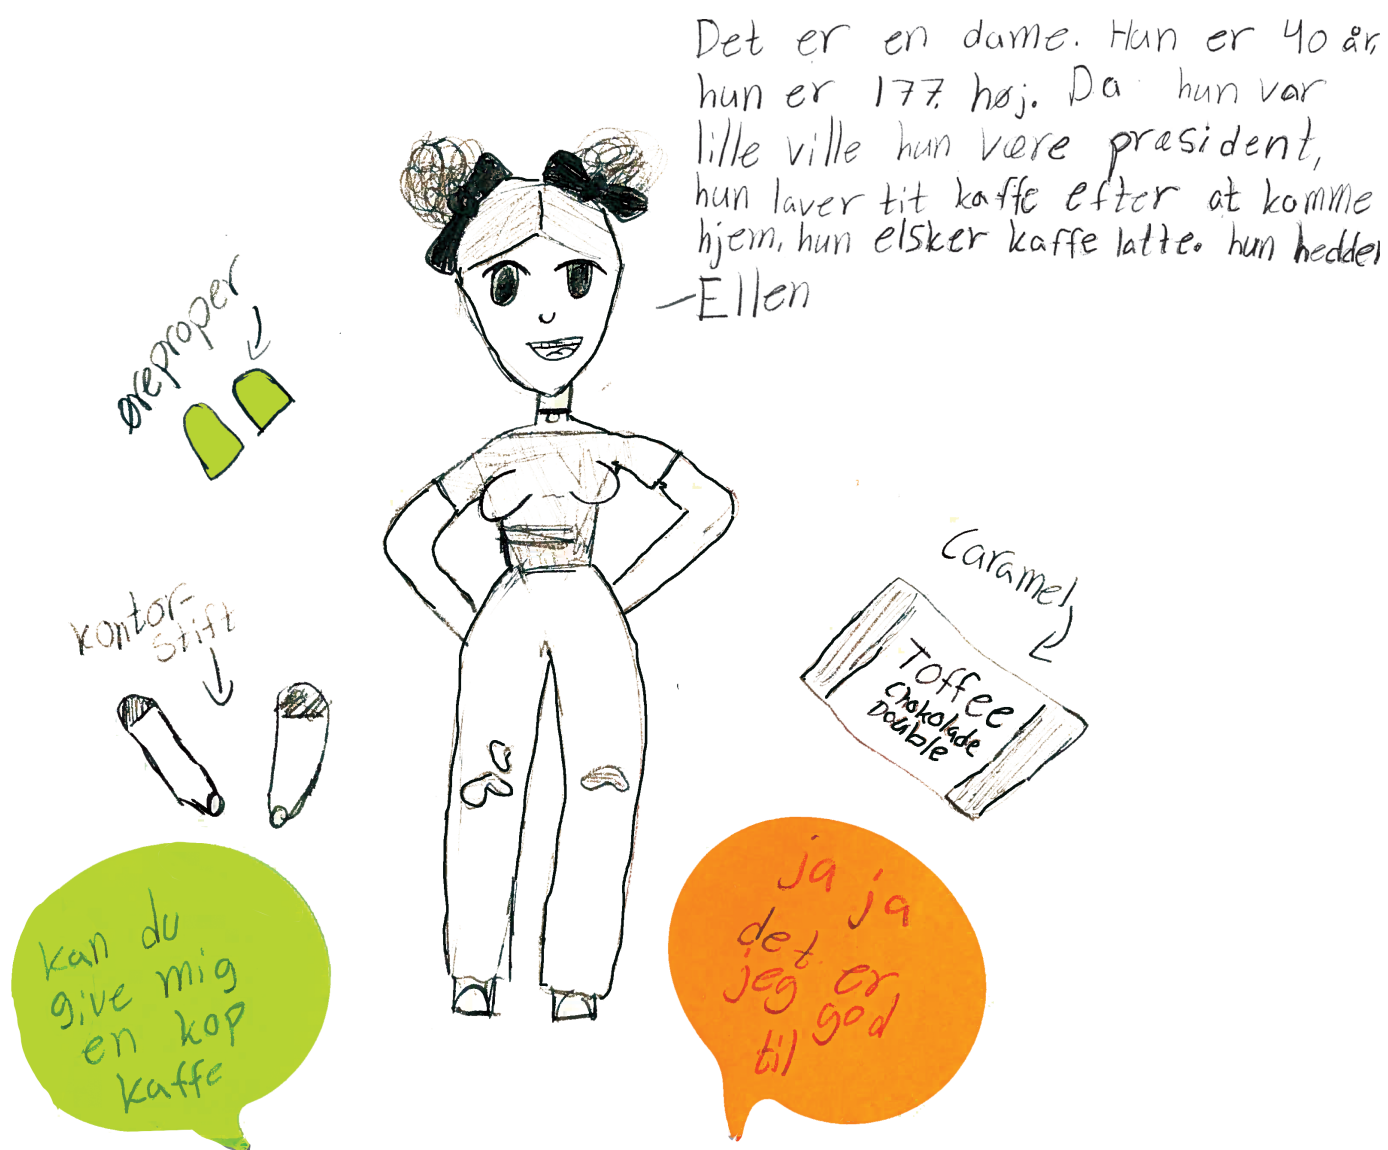 Det er en dame. Hun er 40 år,
hun er 177. høj. Da hun var
lille ville hun være præsident,
hun laver tit kaffe efter at komme
hjem, hun elsker kaffe latte. hun hedder
– Ellen
øreproper
kontor-
stift
Caramel
Toffee
Chokolade
Double
kan du
give mig
en kop
kaffe
ja ja
det
jeg er
god
til